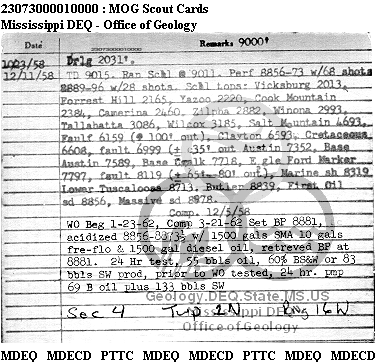 23073000010000 : MOG Scout Cards
Mississippi DEQ - Office of Geology
Date Remarks 9000'
10/23/58 Drlg 2031'.
12/11/58 TD 9015. Ran Schl @ 9011. Perf 8856-73 w/68 shots
8889-96 w/28 shots. Schl tops: Vicksburg 2013,
Forrest Hill 2165, Yazoo 2220, Cook Mountain
2384, Camerina 2460, Zilpha 2882, Winona 2993,
Tallahatta 3086, Wilcox 3185, Salt Mountain 4693,
Fault 6159 (± 100' out), Clayton 6593, Cretaceous
6608, fault 6999 (± 35' out Austin 7352, Base
Austin 7589, Base Chalk 7718, Eagle Ford Marker
7797, fault 8119 (± 65'- 80' out), Marine sh 8319
Lower Tuscaloosa 8713, Butler 8839, First Oil
sd 8856, Massive sd 8978.
Comp. 12/5/58
WO Beg 1-23-62, Comp 3-21-62 Set BP 8881,
acidized 8856-8873½ w/1500 gals SMA 10 gals
fre-flo & 1500 gal diesel oil, retreved BP at
8881. 24 Hr test, 55 bbls oil, 60% BS&W or 83
bbls SW prod, prior to WO tested, 24 hr. pmp
69 B oil plus 133 bbls SW
Geology.DEQ.State.MS.US
Sec 4 Twp 2N Rng 16W
Mississippi DEQ
Office of Geology
MDEQ MDECD PTTC MDEQ MDECD PTTC MDEQ MDECD